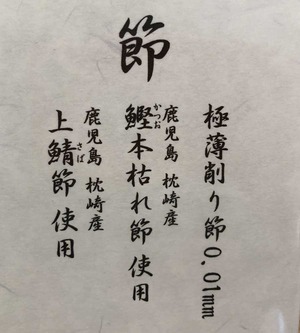 節
極薄削り節0.01mm
鹿児島 枕崎産
かつお
鰹本枯れ節 使用
鹿児島 枕崎産
さば
上鯖節 使用